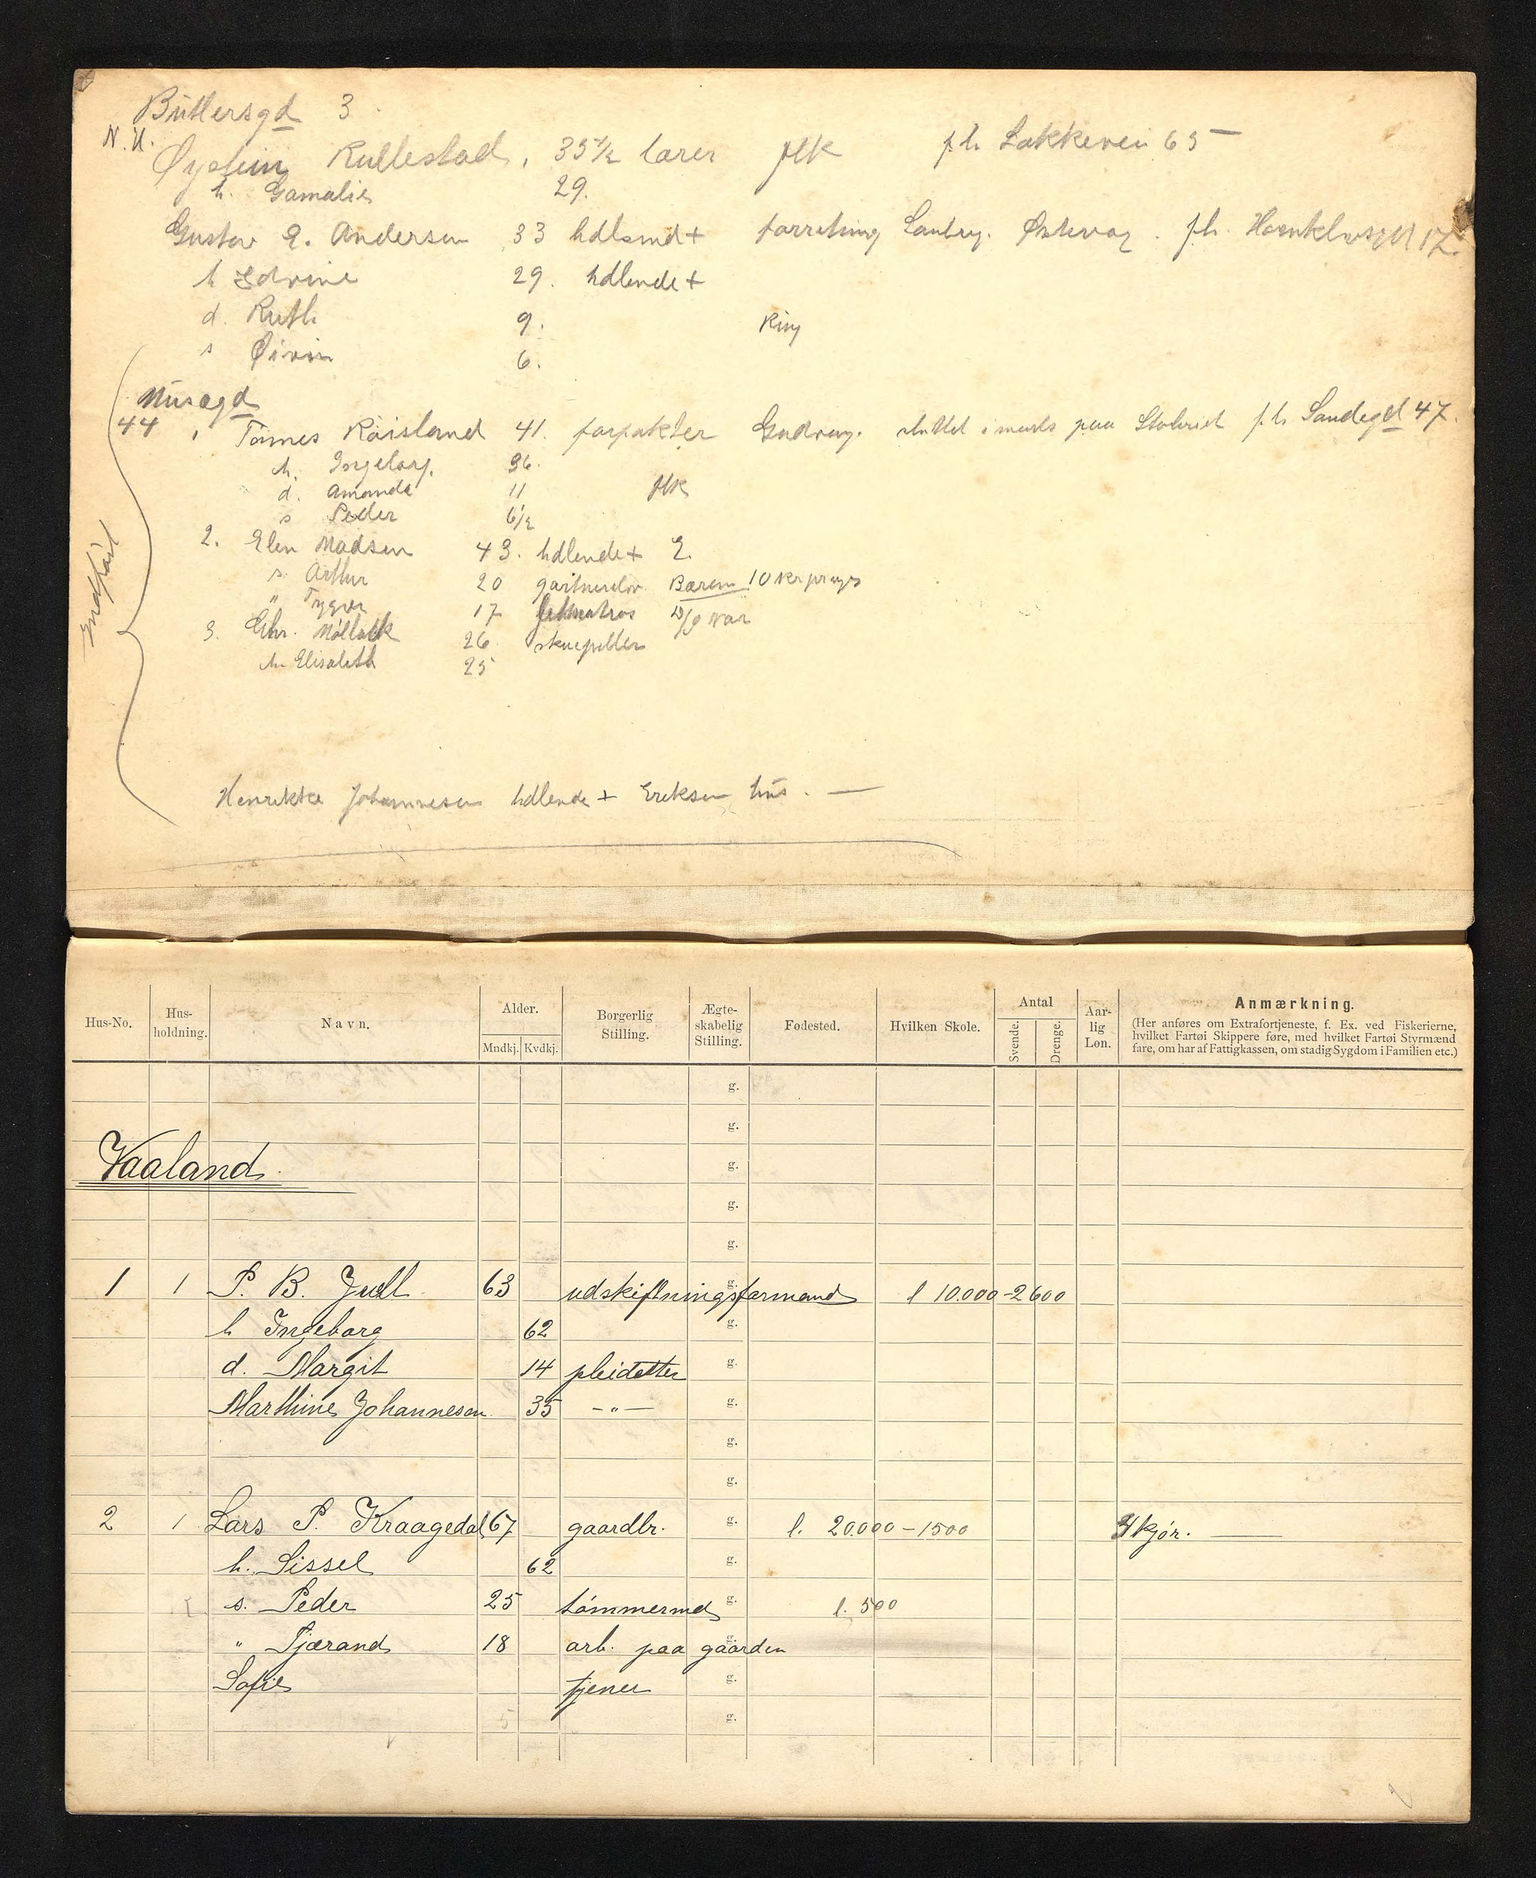 Butlersgd 3
N.U.
Øystein Kullestad. 35½ lærer JHK fh. Løkkevei 65
h. Gamalie 29.
Gustav E. Andersen 33 hdlsmd + forretning fh.
h Edvine 29. hdlende +
d. Ruth 9. King
s Øivin 6.
Musegd
44 1 Tønnes Røisland 41. forpakter flyttet paa fh Sandsgd 47.
h. Ingeborg. 36.
d. Amanda 11 JHK
s Peder 6½
2. Elen Madsen 43. hdlende + E.
s. Arthur 20 gartnerelev Bærum 10 kr
" Trygve 17
3. Chr. Møllbak 26 skuespiller
h. Elisabeth 25
Indført
Henrikke Johannesen hdlende + Eriksen hus. —
Hus-No. Hus-holdning. Navn. Alder. Mndkj. Kvdkj. Borgerlig Stilling. Ægte-skabelig Stilling. Fødested. Hvilken Skole. Antal Svende. Drenge. Aar-lig Løn. Anmærkning.
(Her anføres om Extrafortjeneste, f. Ex. ved Fiskerierne,
hvilket Fartøi Skippere føre, med hvilket Fartøi Styrmænd
fare, om har af Fattigkassen, om stadig Sygdom i Familien etc.)
g.
g.
Vaaland g.
g.
g.
1 1 P. B. Juell 63 udskiftningsformand g. l 10.000 - 2600
h Ingeborg 62 g.
d. Margit 14 pleidatter g.
Marthine Johannesen 35 - " - g.
g.
g.
2 1 Lars P. Kraagedal 67 gaardbr. g. l. 20.000 - 1500 —
h. Sissel 62 g.
s. Peder 25 tømmermd g. l. 500
" Tjærand 18 arb. paa gaarden g.
Sofie tjener g.
g.